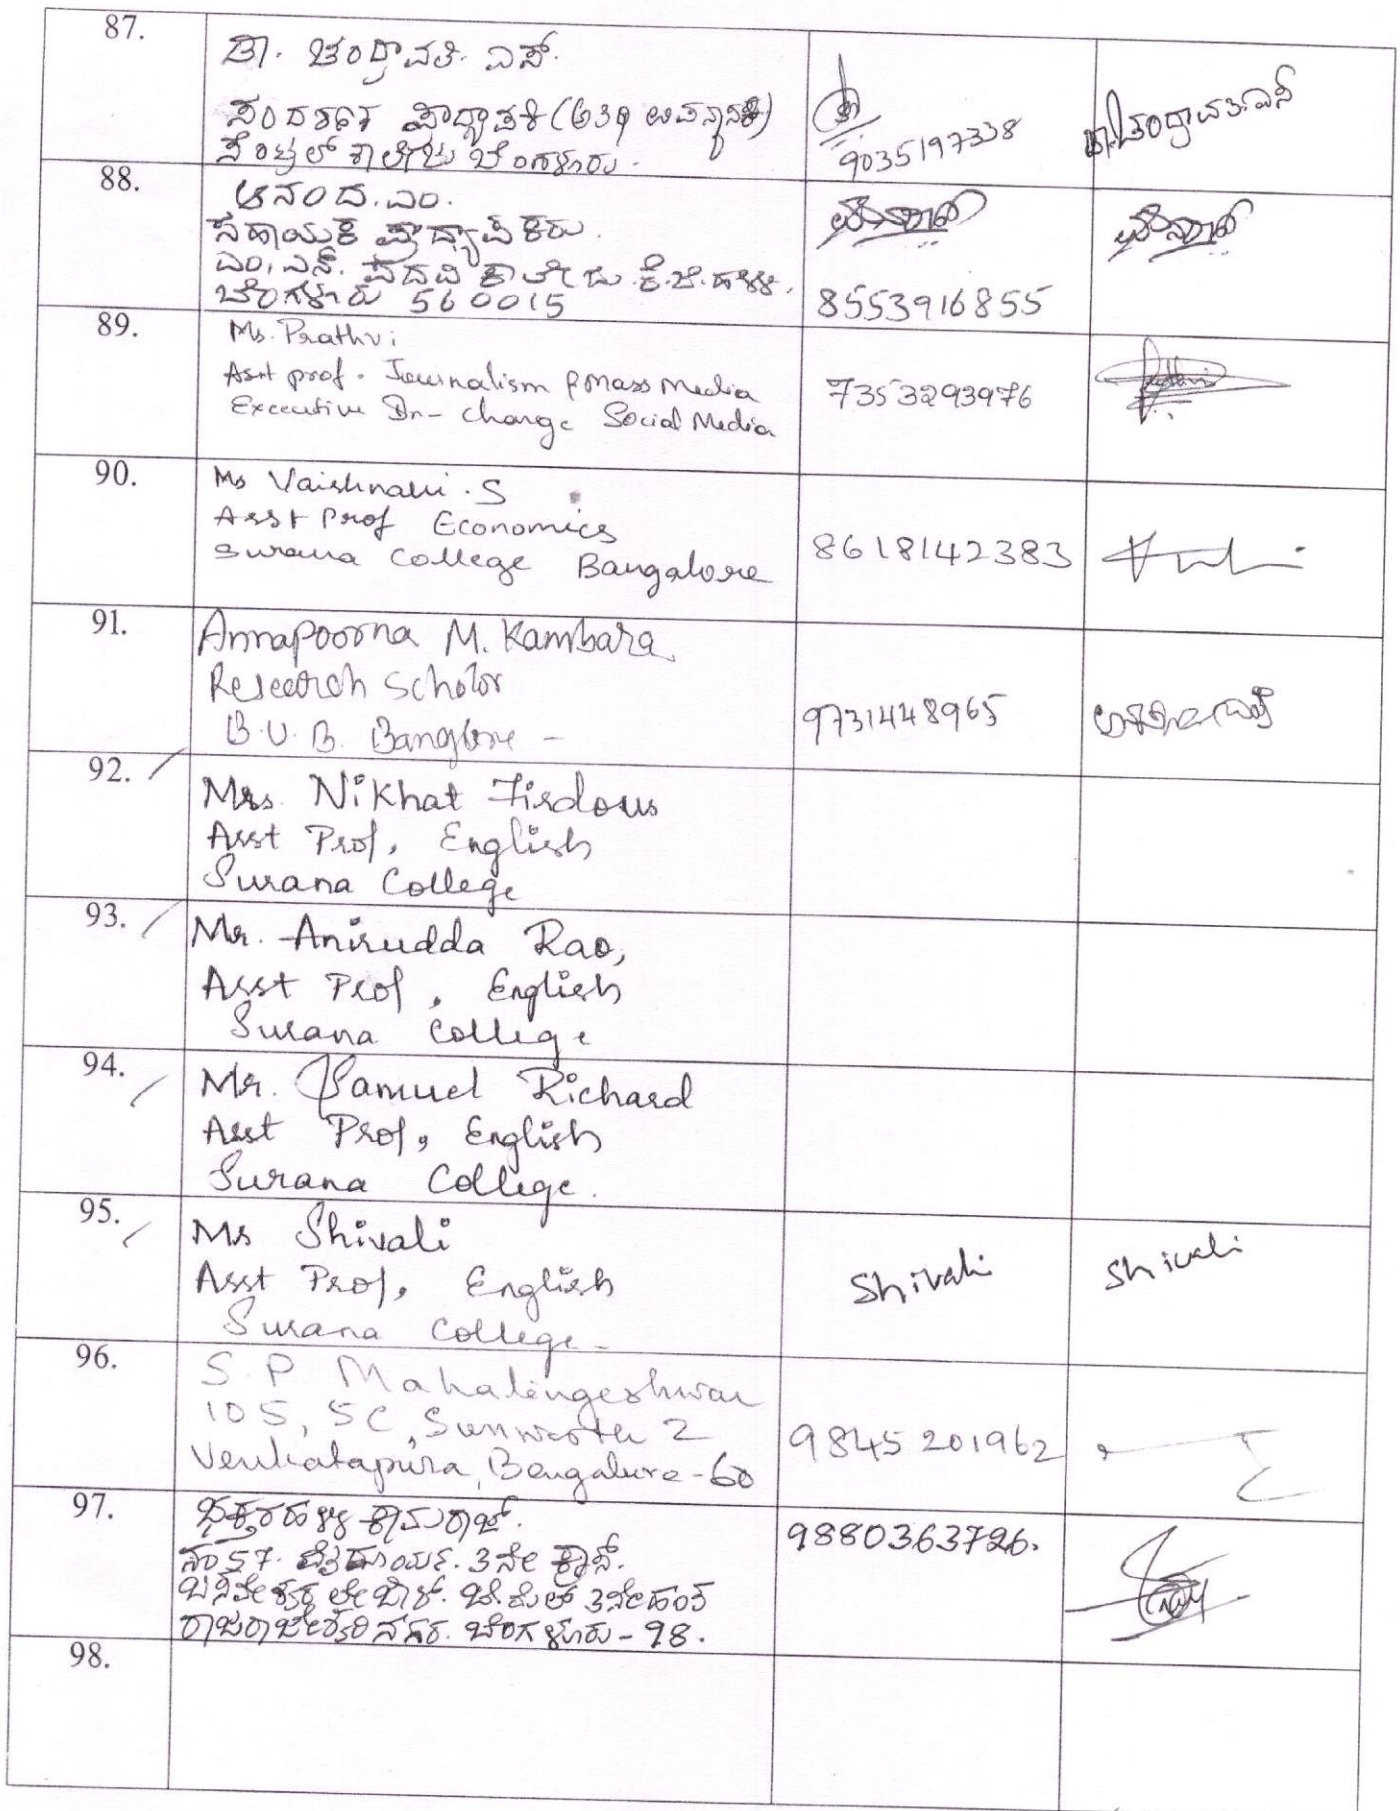 87.
ಡಾ. ಚಂದ್ರಾವತಿ. ಎಸ್.
ಸಂದರ್ಶಕ ಪ್ರಾಧ್ಯಾಪಕಿ (ಅತಿಥಿ ಉಪನ್ಯಾಸಕಿ)
ಸೆಂಟ್ರಲ್ ಕಾಲೇಜು ಬೆಂಗಳೂರು.
9035197338
ಡಾ. ಚಂದ್ರಾವತಿ. ಎಸ್
88.
ಆನಂದ. ಎಂ.
ಸಹಾಯಕ ಪ್ರಾಧ್ಯಾಪಕರು.
ಎಂ. ಎನ್. ಪದವಿ ಕಾಲೇಜು. ಕೆ.ಜಿ. ಹಳ್ಳಿ.
ಬೆಂಗಳೂರು 560015
8553916855
89.
Ms. Prathvi
Asst prof. Journalism & Mass Media
Executive In-charge Social Media
7353293976
90.
Ms Vaishnavi . S
Asst Prof Economics
Surana College Bangalore
8618142383
91.
Annapoorna M. Kambara
Research Scholor
B.U.B. Banglore -
9731448965
92.
Mrs. Nikhat Firdous
Asst Prof, English
Surana College
93.
Mr. Anirudda Rao,
Asst Prof, English
Surana College
94.
Mr. Samuel Richard
Asst Prof, English
Surana College.
95.
Ms Shivali
Asst Prof, English
Surana College -
Shivali
Shivali
96.
S. P Mahalingeshwar
105, 5C, Sunworth 2
Venkatapura, Bengaluru - 60
9845 201962
97.
ಭಕ್ತರಹಳ್ಳಿ ಕಾಮರಾಜ್.
ನಂ 57. 3ನೇ ಕ್ರಾಸ್.
3ನೇ ಹಂತ
ರಾಜರಾಜೇಶ್ವರಿ ನಗರ. ಬೆಂಗಳೂರು - 98.
9880363726.
98.